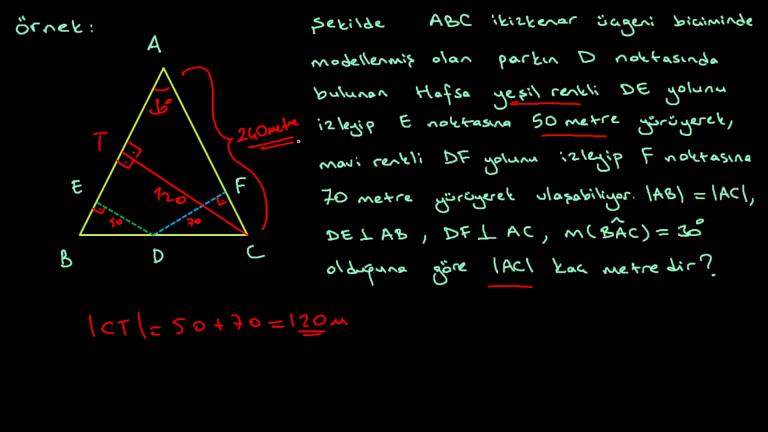 örnek:
Şekilde ABC ikizkenar üçgeni biçiminde
modellenmiş olan parkın D noktasında
bulunan Hafsa yeşil renkli DE yolunu
izleyip E noktasına 50 metre yürüyerek,
mavi renkli DF yolunu izleyip F noktasına
70 metre yürüyerek ulaşabiliyor. |AB| = |AC|,
DE⊥AB, DF⊥AC, m(BÂC) = 30°
olduğuna göre |AC| kaç metredir?
A
30°
T
240metre
E
120
F
50
70
B
D
C
|CT| = 50+70 = 120m